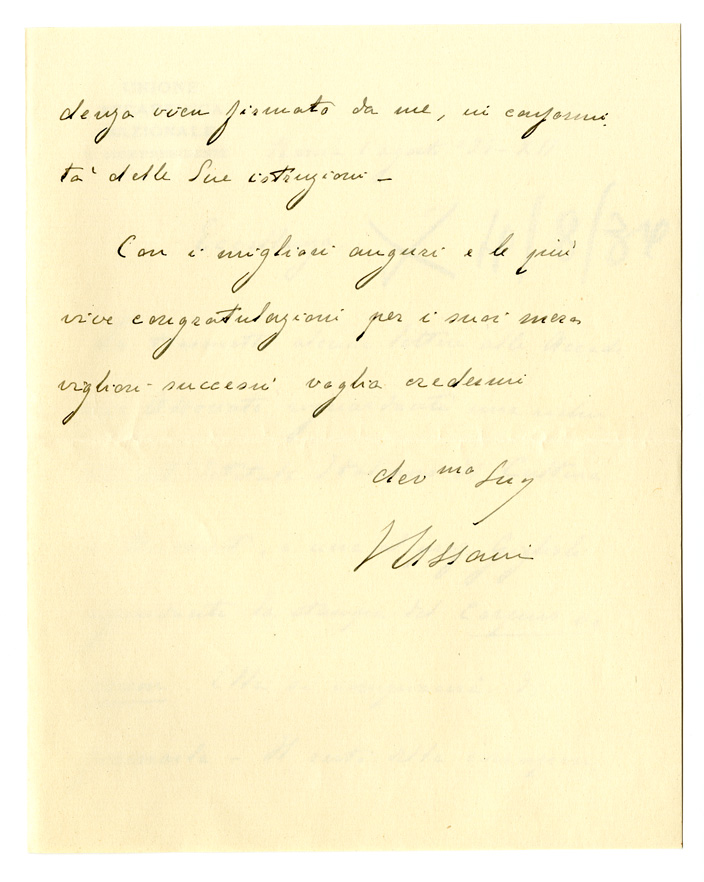 denza vien firmato da me, in conformi-
tà delle Sue istruzioni –
Con i migliori auguri e le più
vive congratulazioni per i suoi mera
vigliosi successi voglia credermi
dev mo Suo
VUssani